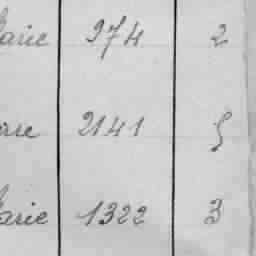 arie 974 2
rre 2141 5
arie 1322 3